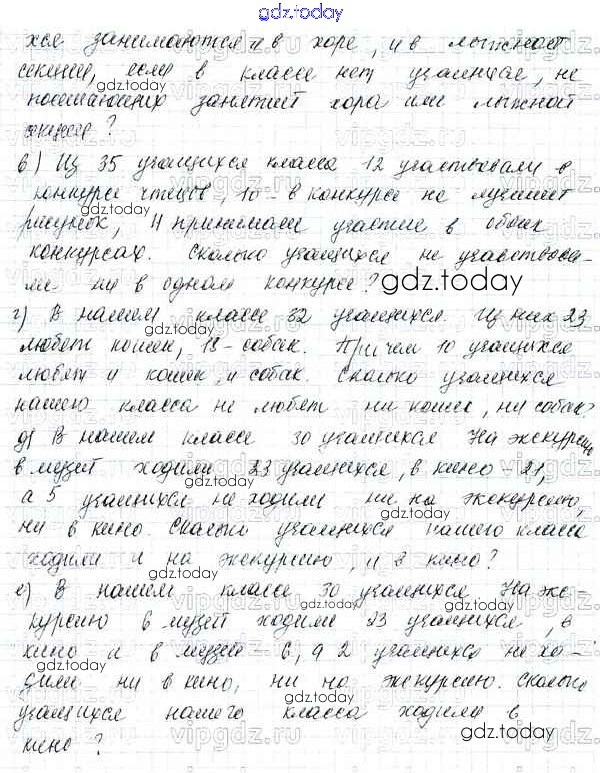 gdz.today
хся занимаются и в хоре, и в лыжной
секции, если в классе нет учащихся, не
gdz.today
посещающих занятий хора или лыжной
секции?
в) Из 35 учащихся класса 12 участвовали в
конкурсе чтецов, 10 - в конкурсе на лучший
gdz.today
рисунок, 4 принимали участие в обоих
конкурсах. Сколько учащихся не участвова-
ли ни в одном конкурсе?
gdz.today
г) В нашем классе 32 учащихся. Из них 23
gdz.today
любят кошек, 18 - собак. Причем 10 учащихся
любят и кошек, и собак. Сколько учащихся
нашего класса не любят ни кошек, ни собак?
gdz.today
д) В нашем классе 30 учащихся. На экскурсию
в музей ходили 23 учащихся, в кино - 21,
а 5 учащихся не ходили ни на экскурсию,
gdz.today
ни в кино. Сколько учащихся нашего класса
ходили и на экскурсию, и в кино?
gdz.today
е) В нашем классе 30 учащихся. На экс-
курсию в музей ходили 23 учащихся, в
gdz.today
кино и в музей - 6, а 2 учащихся не хо-
gdz.today
дили ни в кино, ни на экскурсию. Сколько
gdz.today
учащихся нашего класса ходили в
gdz.today
кино?